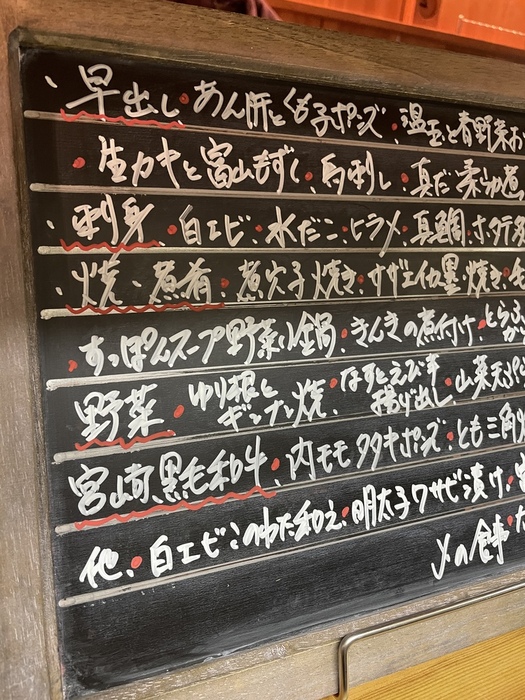 、早出し・あん肝とくも子ポンズ・温玉と青野菜お
・生カキと富山もずく、馬刺し・真だこ柔らか煮
・刺身、白エビ・水だこ・ヒラメ・真鯛・ホタテ
・焼・煮肴・煮穴子焼き・サザエイカ墨焼き・
・すっぽんスープ野菜小鍋・きんきの煮付け・とらふ
野菜・ゆり根とギンナン焼・なすとえび芋揚げ出し・山菜天ぷら
宮崎黒毛和牛・内モモタタキポンズ・とも三角
他・白エビこのわた和え・明太子ワサビ漬け・
〆の食事・